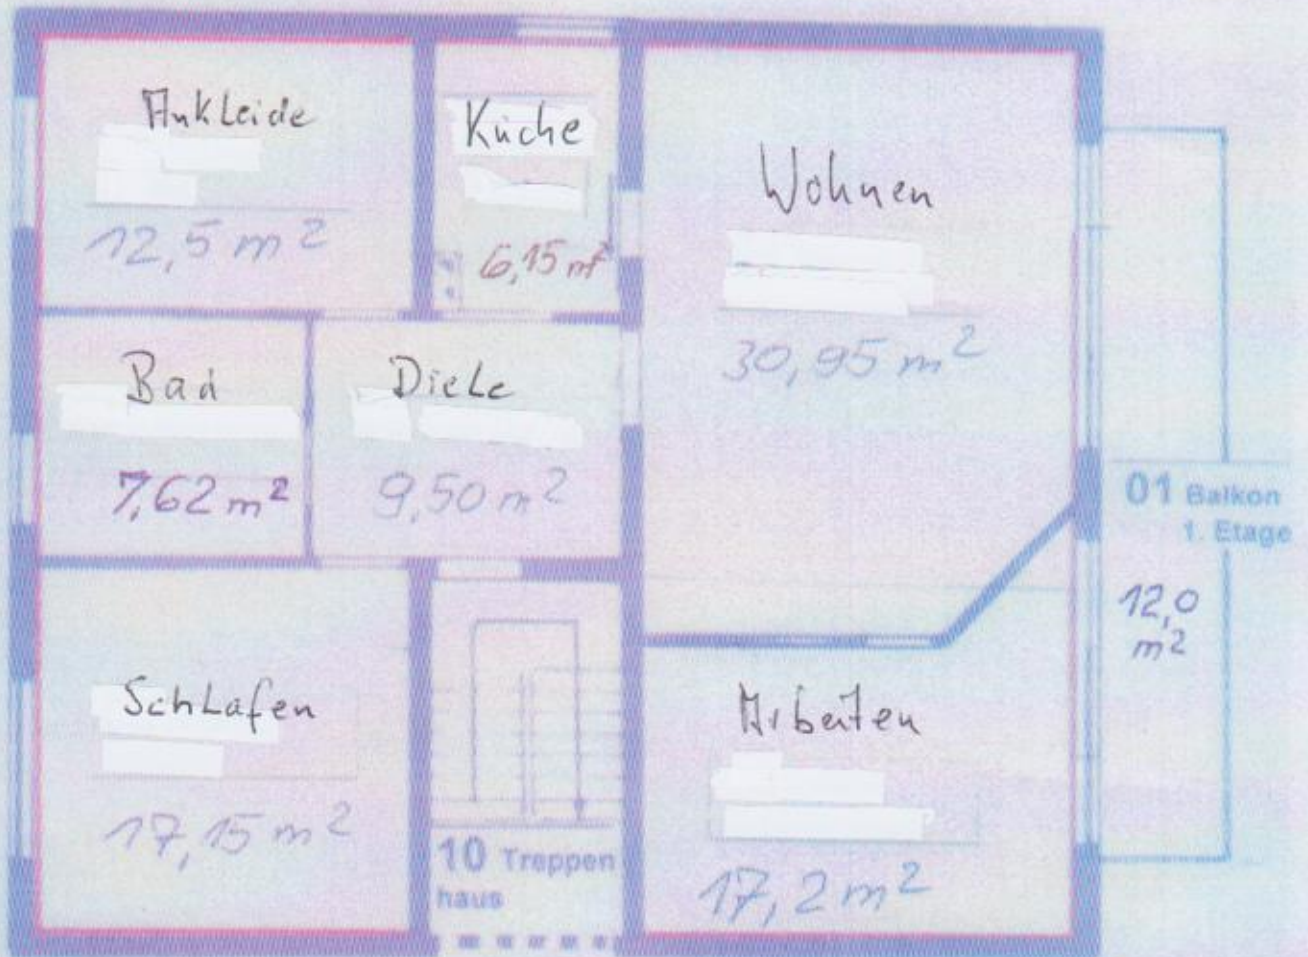 Ankleide
12,5 m²
Küche
6,15 m²
Wohnen
30,95 m²
Bad
7,62 m²
Diele
9,50 m²
01 Balkon
1. Etage
12,0
m²
Schlafen
17,15 m²
10 Treppen
haus
Arbeiten
17,2 m²